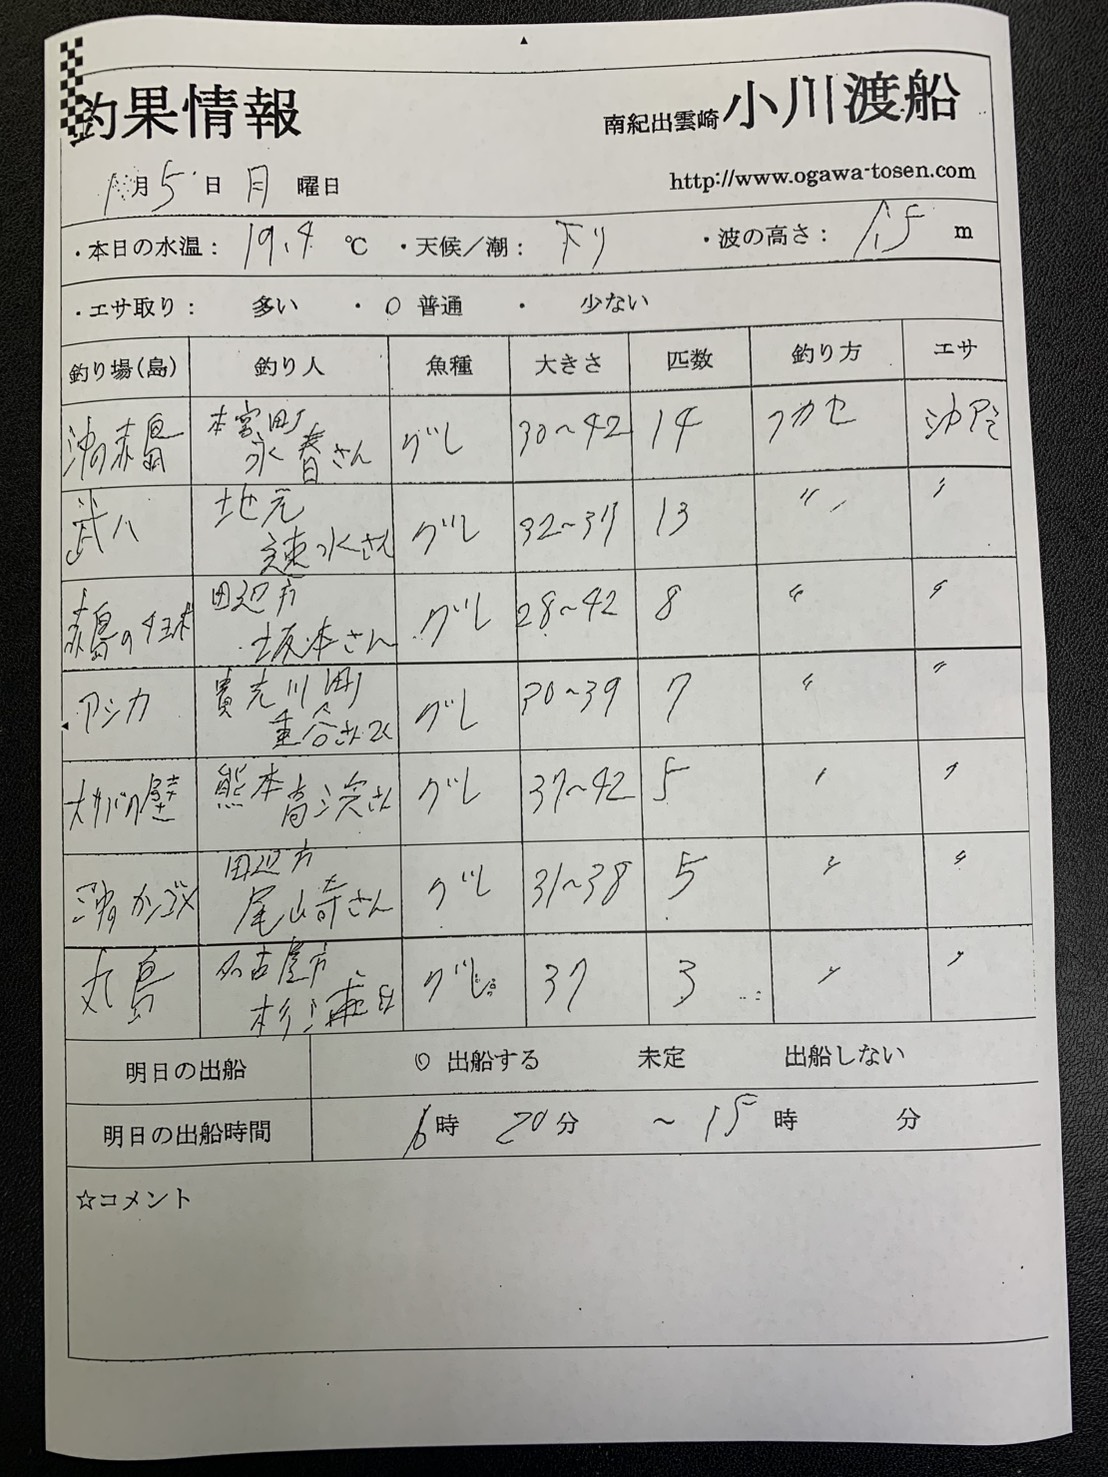 釣果情報
南紀出雲崎 小川渡船
1月5日 月 曜日
http://www.ogawa-tosen.com
・本日の水温： 19.4 ℃ ・天候／潮： 下り ・波の高さ： 1.5 m
・エサ取り： 多い ・ ○ 普通 ・ 少ない
釣り場(島) 釣り人 魚種 大きさ 匹数 釣り方 エサ
沖の赤島 本宮町 永春さん グレ 30～42 14 フカセ 沖アミ
武八 地元 速水さん グレ 32～37 13 〃 〃
赤島の 田辺市 坂本さん グレ 28～42 8 〃 〃
アシカ 貴志川町 重谷さん グレ 30～39 7 〃 〃
大カバの壁 熊本 さん グレ 37～42 5 〃 〃
沖の 田辺市 尾崎さん グレ 31～38 5 〃 〃
丸島 名古屋市 杉浦 グレ 37 3 〃 〃
明日の出船 ○ 出船する 未定 出船しない
明日の出船時間 6時 20分 ～ 15時 分
☆コメント